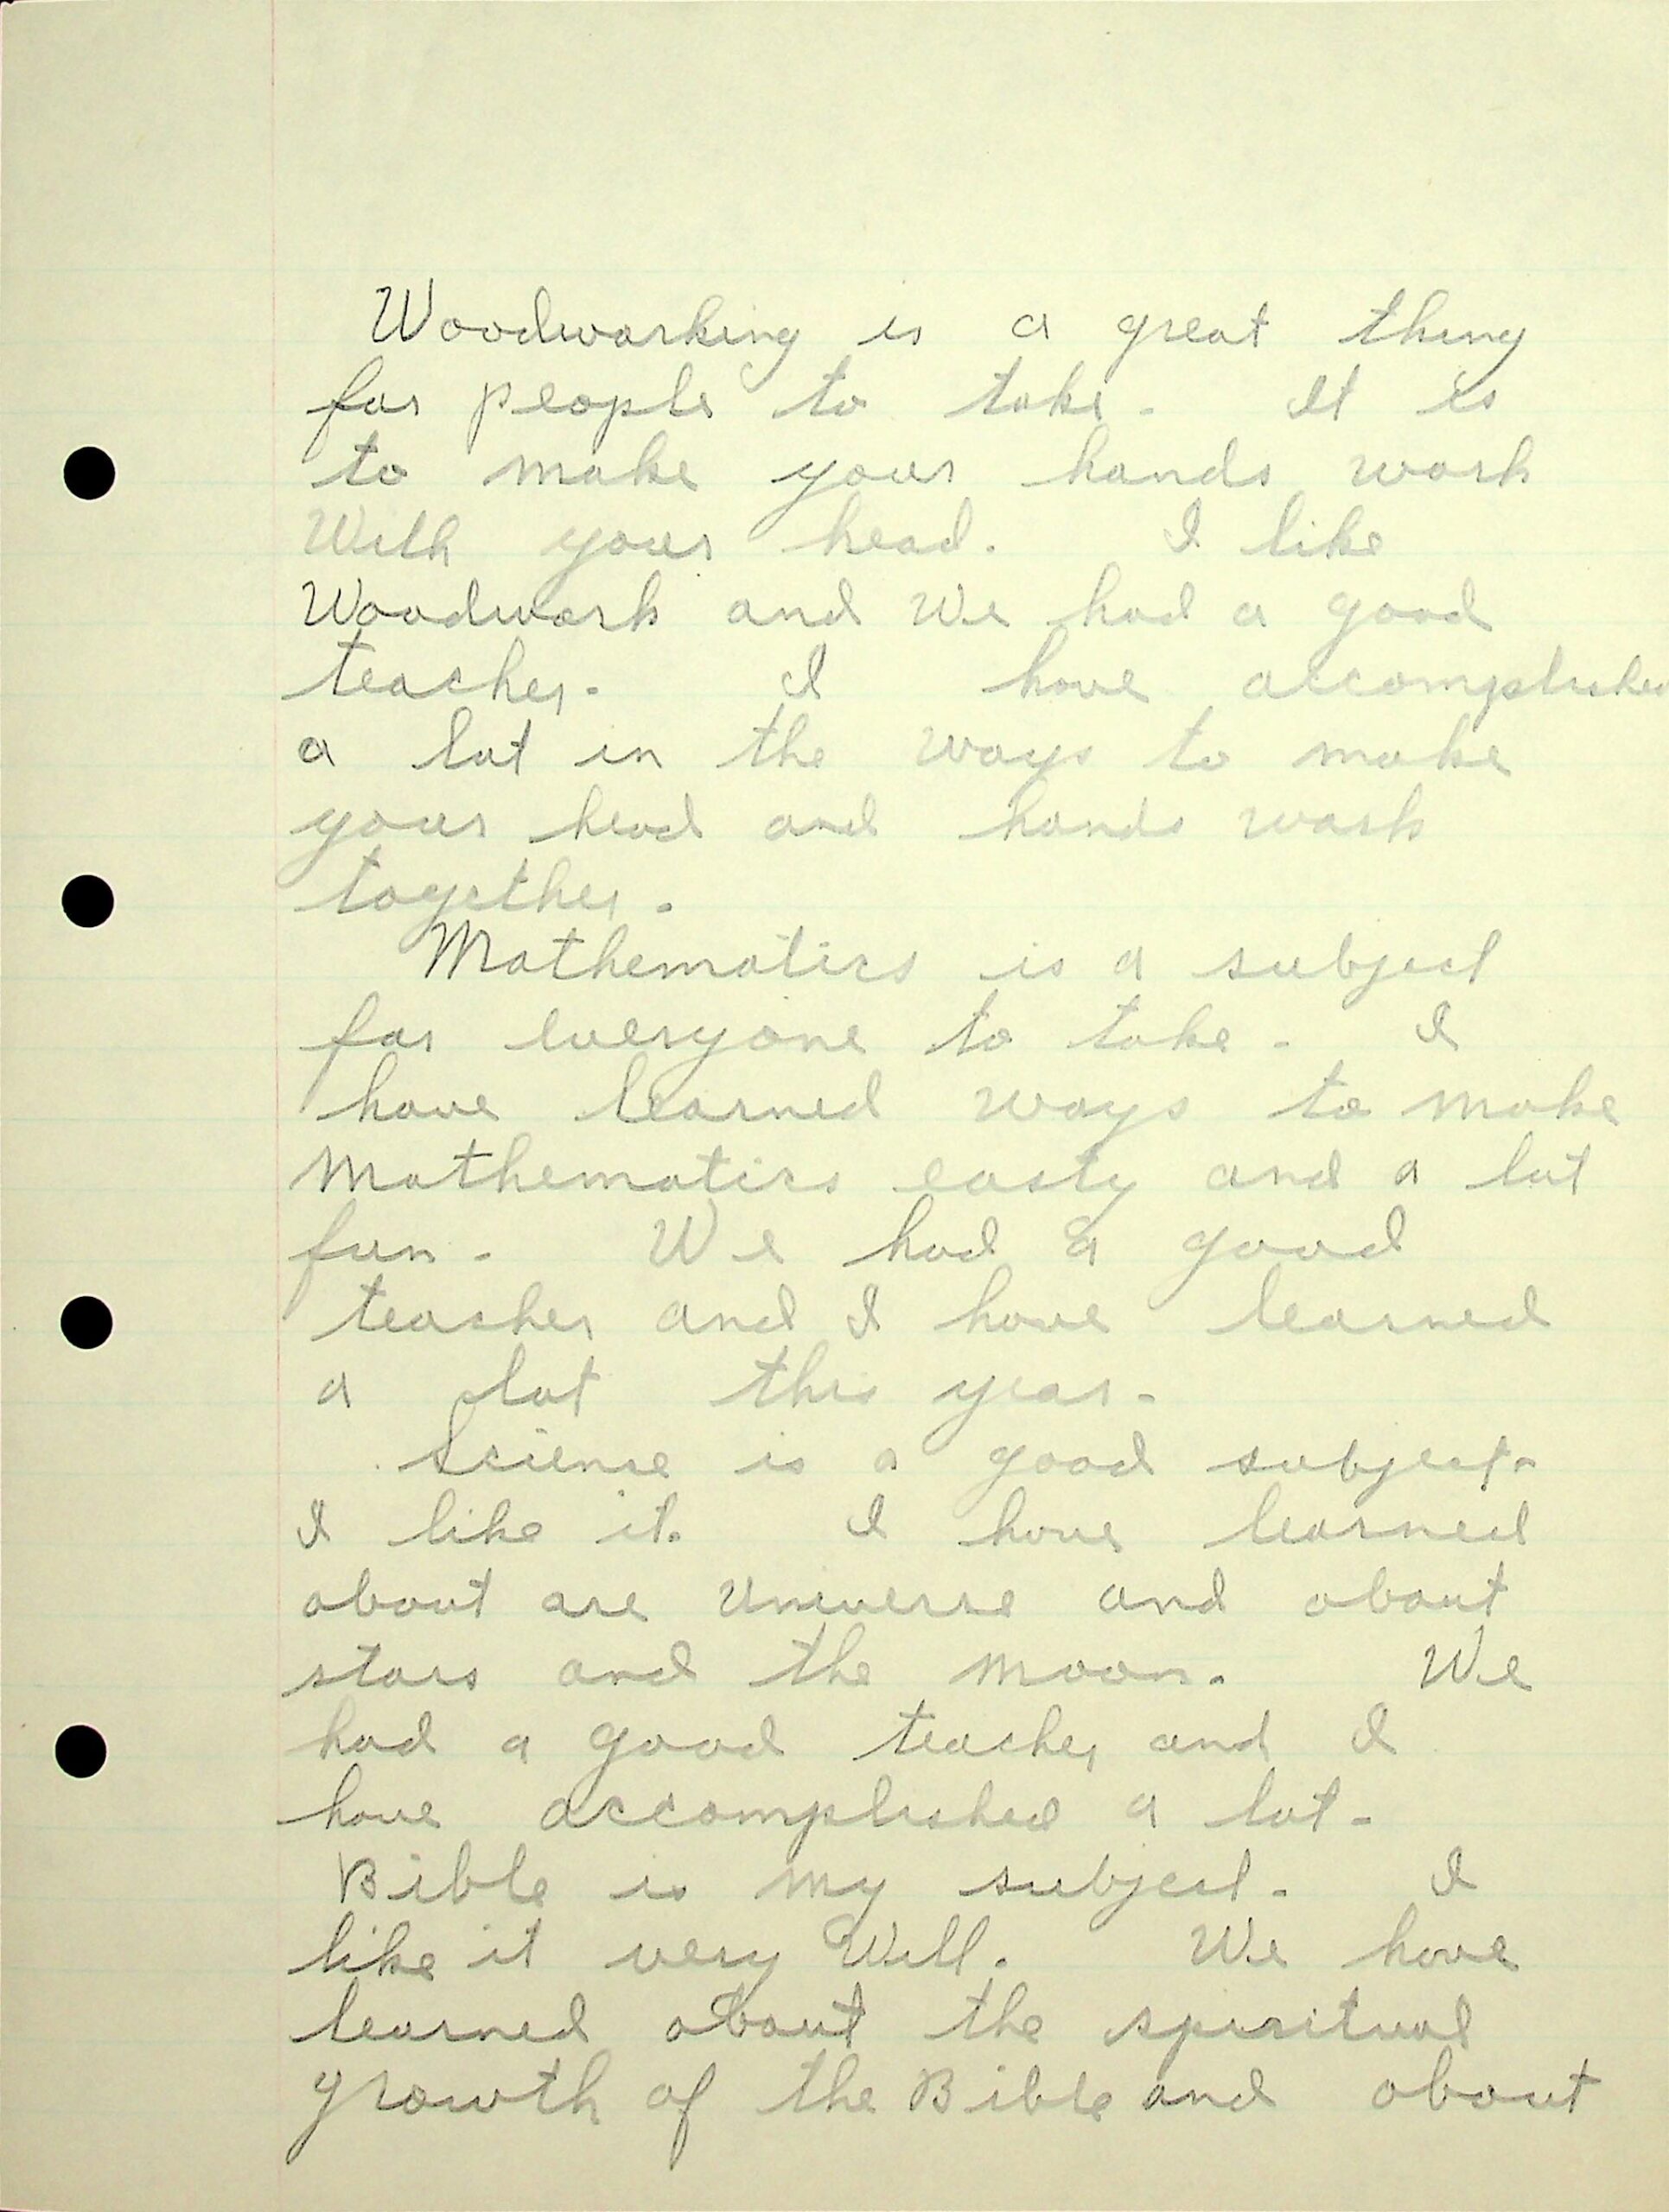 Woodworking is a great thing
for people to take. It is
to make your hands work
With your head. I like
Woodwork and We had a good
teacher. I have accomplished
a lot in the ways to make
your head and hands work
together.
Mathematics is a subject
for everyone to take. I
have learned ways to make
Mathematics easty and a lot
fun. We had a good
teacher and I have learned
a lot this year.
Science is a good subject.
I like it. I have learned
about are Universe and about
stars and the moon. We
had a good teacher and I
have accomplished a lot.
Bible is my subject. I
like it very Well. We have
learned about the spiritual
growth of the Bible and about